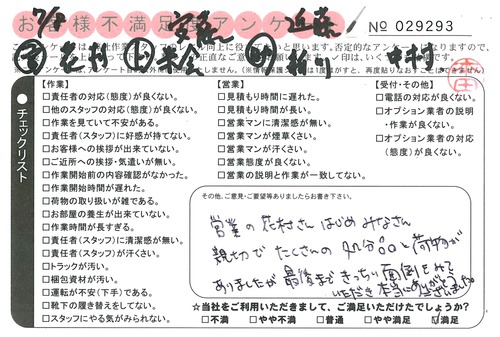 お客様不満足度アンケート
No 029293
7/8
近藤
花村
中村
【作業】
□責任者の対応(態度)が良くない。
□他のスタッフの対応(態度)が良くない。
□作業を見ていて不安がある。
□責任者(スタッフ)に好感が持てない。
□お客様への挨拶が出来ていない。
□ご近所への挨拶・気遣いが無い。
□作業開始前の内容確認がなかった。
□作業開始時間が遅れた。
□荷物の取り扱いが雑である。
□お部屋の養生が出来ていない。
□作業時間が長すぎる。
□責任者(スタッフ)に清潔感が無い。
□責任者(スタッフ)が汗くさい。
□トラックが汚い。
□梱包資材が汚い。
□運転が不安(下手)である。
□靴下の履き替えをしてない。
□スタッフにやる気がみられない。
【営業】
□見積もり時間に遅れた。
□見積もり時間が長い。
□営業マンに清潔感が無い。
□営業マンが煙草くさい。
□営業マンが汗くさい。
□営業態度が良くない。
□営業の説明と作業が一致してない。
【受付・その他】
□電話の対応が良くない。
□オプション業者の説明・作業が良くない。
□オプション業者の対応(態度)が良くない。
●チェックリスト
その他、ご意見・ご要望等ありましたらお書き下さい。
営業の花村さんはじめみなさん
親切でたくさんの処分品と荷物が
ありましたが最後まできっちり面倒をみて
いただき本当にありがとうございました。
☆当社をご利用いただきまして、ご満足いただけたでしょうか?
□不満 □やや不満 □普通 □やや満足 ☑満足